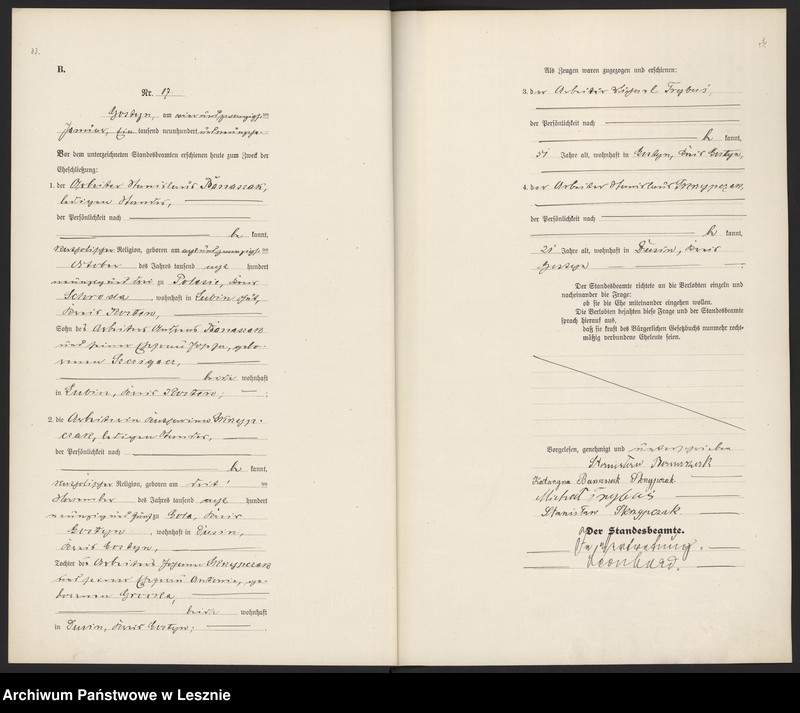 B.
Nr. 17
Gostyn, am vier und zwanzigsten
Januar, Ein tausend neunhundert
Vor dem unterzeichneten Standesbeamten erschienen heute zum Zweck der
Eheschließung:
1. der Arbeiter Stanislaus Banaszak,
ledigen Standes,
der Persönlichkeit nach
be kannt,
katholischer Religion, geboren am acht und zwanzigsten
Oktober des Jahres tausend acht hundert
neunzig und drei zu Kreis
Schroda, wohnhaft in Lubin
Kreis Kosten,
Sohn des Arbeiters Banaszak
und seiner Ehefrau Josefa, gebo-
renen
beide wohnhaft
in Lubin, Kreis Kosten;
2. die Arbeiterin Katharina Skrzyp-
czak, ledigen Standes,
der Persönlichkeit nach
be kannt,
katholischer Religion, geboren am
November des Jahres tausend acht hundert
neunzig und fünf zu Gola, Kreis
Gostyn, wohnhaft in Dusin,
Kreis Gostyn,
Tochter des Arbeiters Johann Skrzypczak
und seiner Ehefrau Antonie, ge-
borenen
beide wohnhaft
in Dusin, Kreis Gostyn;
Als Zeugen waren zugezogen und erschienen:
3. der Arbeiter Michael Trybus,
der Persönlichkeit nach
be kannt,
51 Jahre alt, wohnhaft in Gostyn, Kreis Gostyn,
4. der Arbeiter Stanislaus Skrzypczak,
der Persönlichkeit nach
be kannt,
Jahre alt, wohnhaft in Dusin, Kreis
Gostyn
Der Standesbeamte richtete an die Verlobten einzeln und
nacheinander die Frage:
ob sie die Ehe miteinander eingehen wollen.
Die Verlobten bejahten diese Frage und der Standesbeamte
sprach hierauf aus,
daß sie kraft des Bürgerlichen Gesetzbuchs nunmehr recht-
mäßig verbundene Eheleute seien.
Vorgelesen, genehmigt und unterschrieben
Stanisław Banaszak
Katarzyna Banaszak Skrzypczak
Michał Trybuś
Stanisław Skrzypczak
Der Standesbeamte.
In Vertretung.
Leonhard.
Archiwum Państwowe w Lesznie